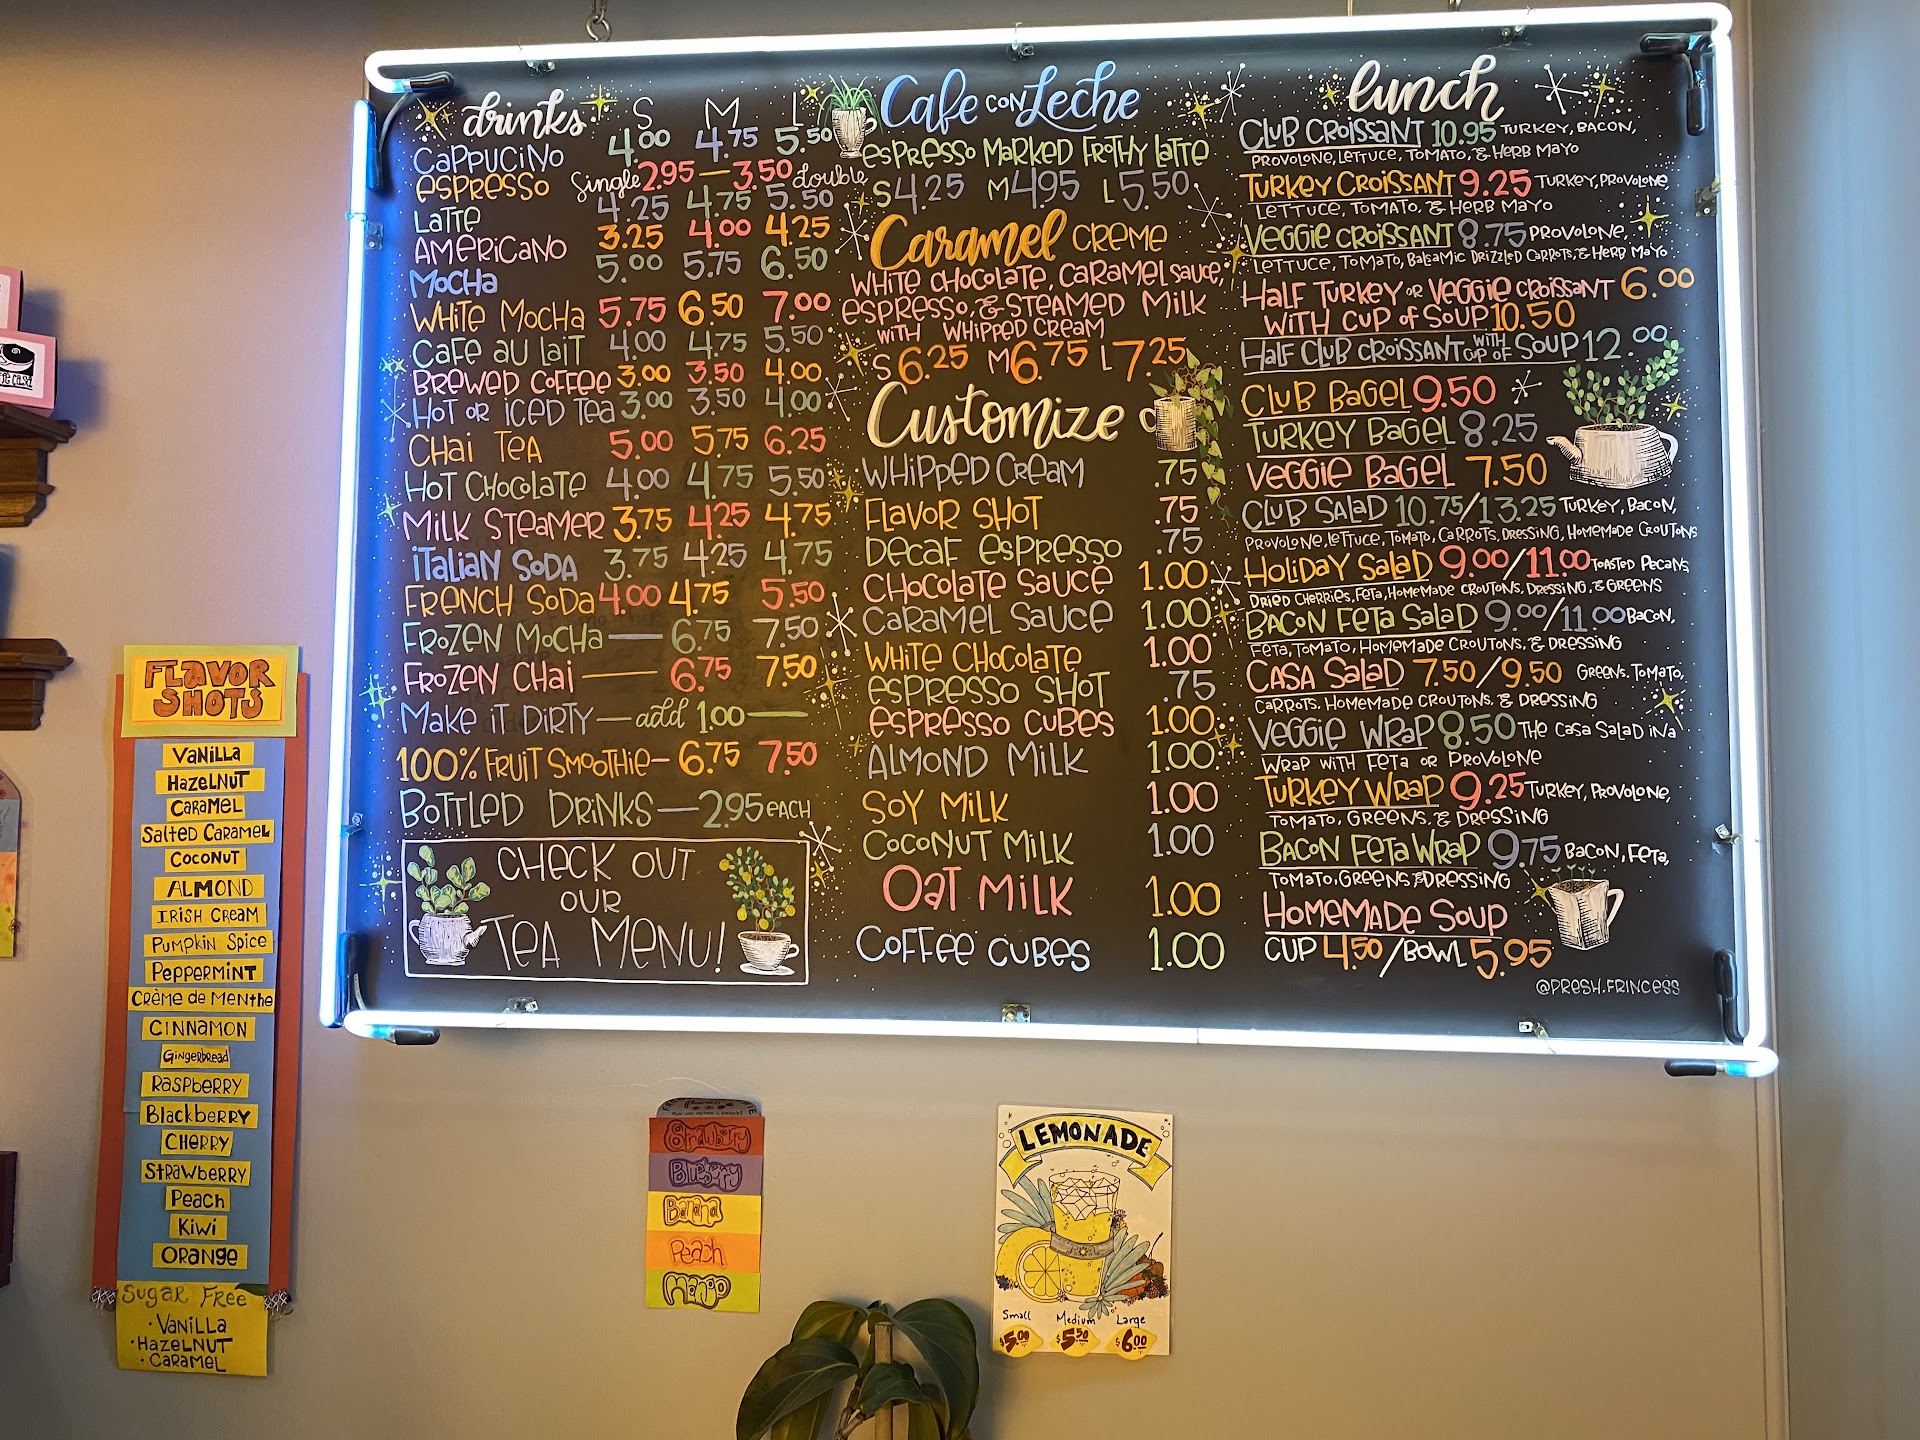 drinks S M L
CAPPUCINO 4.00 4.75 5.50
ESPRESSO Single 2.95 — 3.50 double
LATTE 4.25 4.75 5.50
AMERICANO 3.25 4.00 4.25
MOCHA 5.00 5.75 6.50
WHITE MOCHA 5.75 6.50 7.00
CAFE AU LAIT 4.00 4.75 5.50
BREWED COFFEE 3.00 3.50 4.00
HOT OR ICED TEA 3.00 3.50 4.00
CHAI TEA 5.00 5.75 6.25
HOT CHOCOLATE 4.00 4.75 5.50
MILK STEAMER 3.75 4.25 4.75
ITALIAN SODA 3.75 4.25 4.75
FRENCH SODA 4.00 4.75 5.50
FROZEN MOCHA — 6.75 7.50
FROZEN CHAI — 6.75 7.50
MAKE IT DIRTY — add 1.00 —
100% FRUIT SMOOTHIE — 6.75 7.50
BOTTLED DRINKS — 2.95 EACH
CHECK OUT
OUR
TEA MENU!
Cafe CON Leche
ESPRESSO MARKED FROTHY LATTE
S 4.25 M 4.95 L 5.50
Caramel CREME
WHITE CHOCOLATE, CARAMEL SAUCE,
ESPRESSO, & STEAMED MILK
WITH WHIPPED CREAM
S 6.25 M 6.75 L 7.25
Customize
WHIPPED CREAM .75
FLAVOR SHOT .75
DECAF ESPRESSO .75
CHOCOLATE SAUCE 1.00
CARAMEL SAUCE 1.00
WHITE CHOCOLATE 1.00
ESPRESSO SHOT .75
ESPRESSO CUBES 1.00
ALMOND MILK 1.00
SOY MILK 1.00
COCONUT MILK 1.00
OAT MILK 1.00
COFFEE CUBES 1.00
lunch
CLUB CROISSANT 10.95 TURKEY, BACON,
PROVOLONE, LETTUCE, TOMATO, & HERB MAYO
TURKEY CROISSANT 9.25 TURKEY, PROVOLONE,
LETTUCE, TOMATO, & HERB MAYO
VEGGIE CROISSANT 8.75 PROVOLONE,
LETTUCE, TOMATO, BALSAMIC DRIZZLED CARROTS, & HERB MAYO
HALF TURKEY OR VEGGIE CROISSANT 6.00
WITH CUP OF SOUP 10.50
HALF CLUB CROISSANT WITH CUP OF SOUP 12.00
CLUB BAGEL 9.50
TURKEY BAGEL 8.25
VEGGIE BAGEL 7.50
CLUB SALAD 10.75/13.25 TURKEY, BACON,
PROVOLONE, LETTUCE, TOMATO, CARROTS, DRESSING, HOMEMADE CROUTONS
HOLIDAY SALAD 9.00/11.00 TOASTED PECANS,
DRIED CHERRIES, FETA, HOMEMADE CROUTONS, DRESSING, & GREENS
BACON FETA SALAD 9.00/11.00 BACON,
FETA, TOMATO, HOMEMADE CROUTONS, & DRESSING
CASA SALAD 7.50/9.50 GREENS, TOMATO,
CARROTS, HOMEMADE CROUTONS, & DRESSING
VEGGIE WRAP 8.50 THE CASA SALAD IN A
WRAP WITH FETA OR PROVOLONE
TURKEY WRAP 9.25 TURKEY, PROVOLONE,
TOMATO, GREENS, & DRESSING
BACON FETA WRAP 9.75 BACON, FETA,
TOMATO, GREENS & DRESSING
HOMEMADE SOUP
CUP 4.50/BOWL 5.95
@PRESH.FRINCESS
FLAVOR
SHOTS
VANILLA
HAZELNUT
CARAMEL
SALTED CARAMEL
COCONUT
ALMOND
IRISH CREAM
PUMPKIN SPICE
PEPPERMINT
CRÈME DE MENTHE
CINNAMON
GINGERBREAD
RASPBERRY
BLACKBERRY
CHERRY
STRAWBERRY
PEACH
KIWI
ORANGE
SUGAR FREE
• VANILLA
• HAZELNUT
• CARAMEL
Strawberry
Blueberry
Banana
Peach
Mango
LEMONADE
Small Medium Large
$5.00 $5.50 $6.00